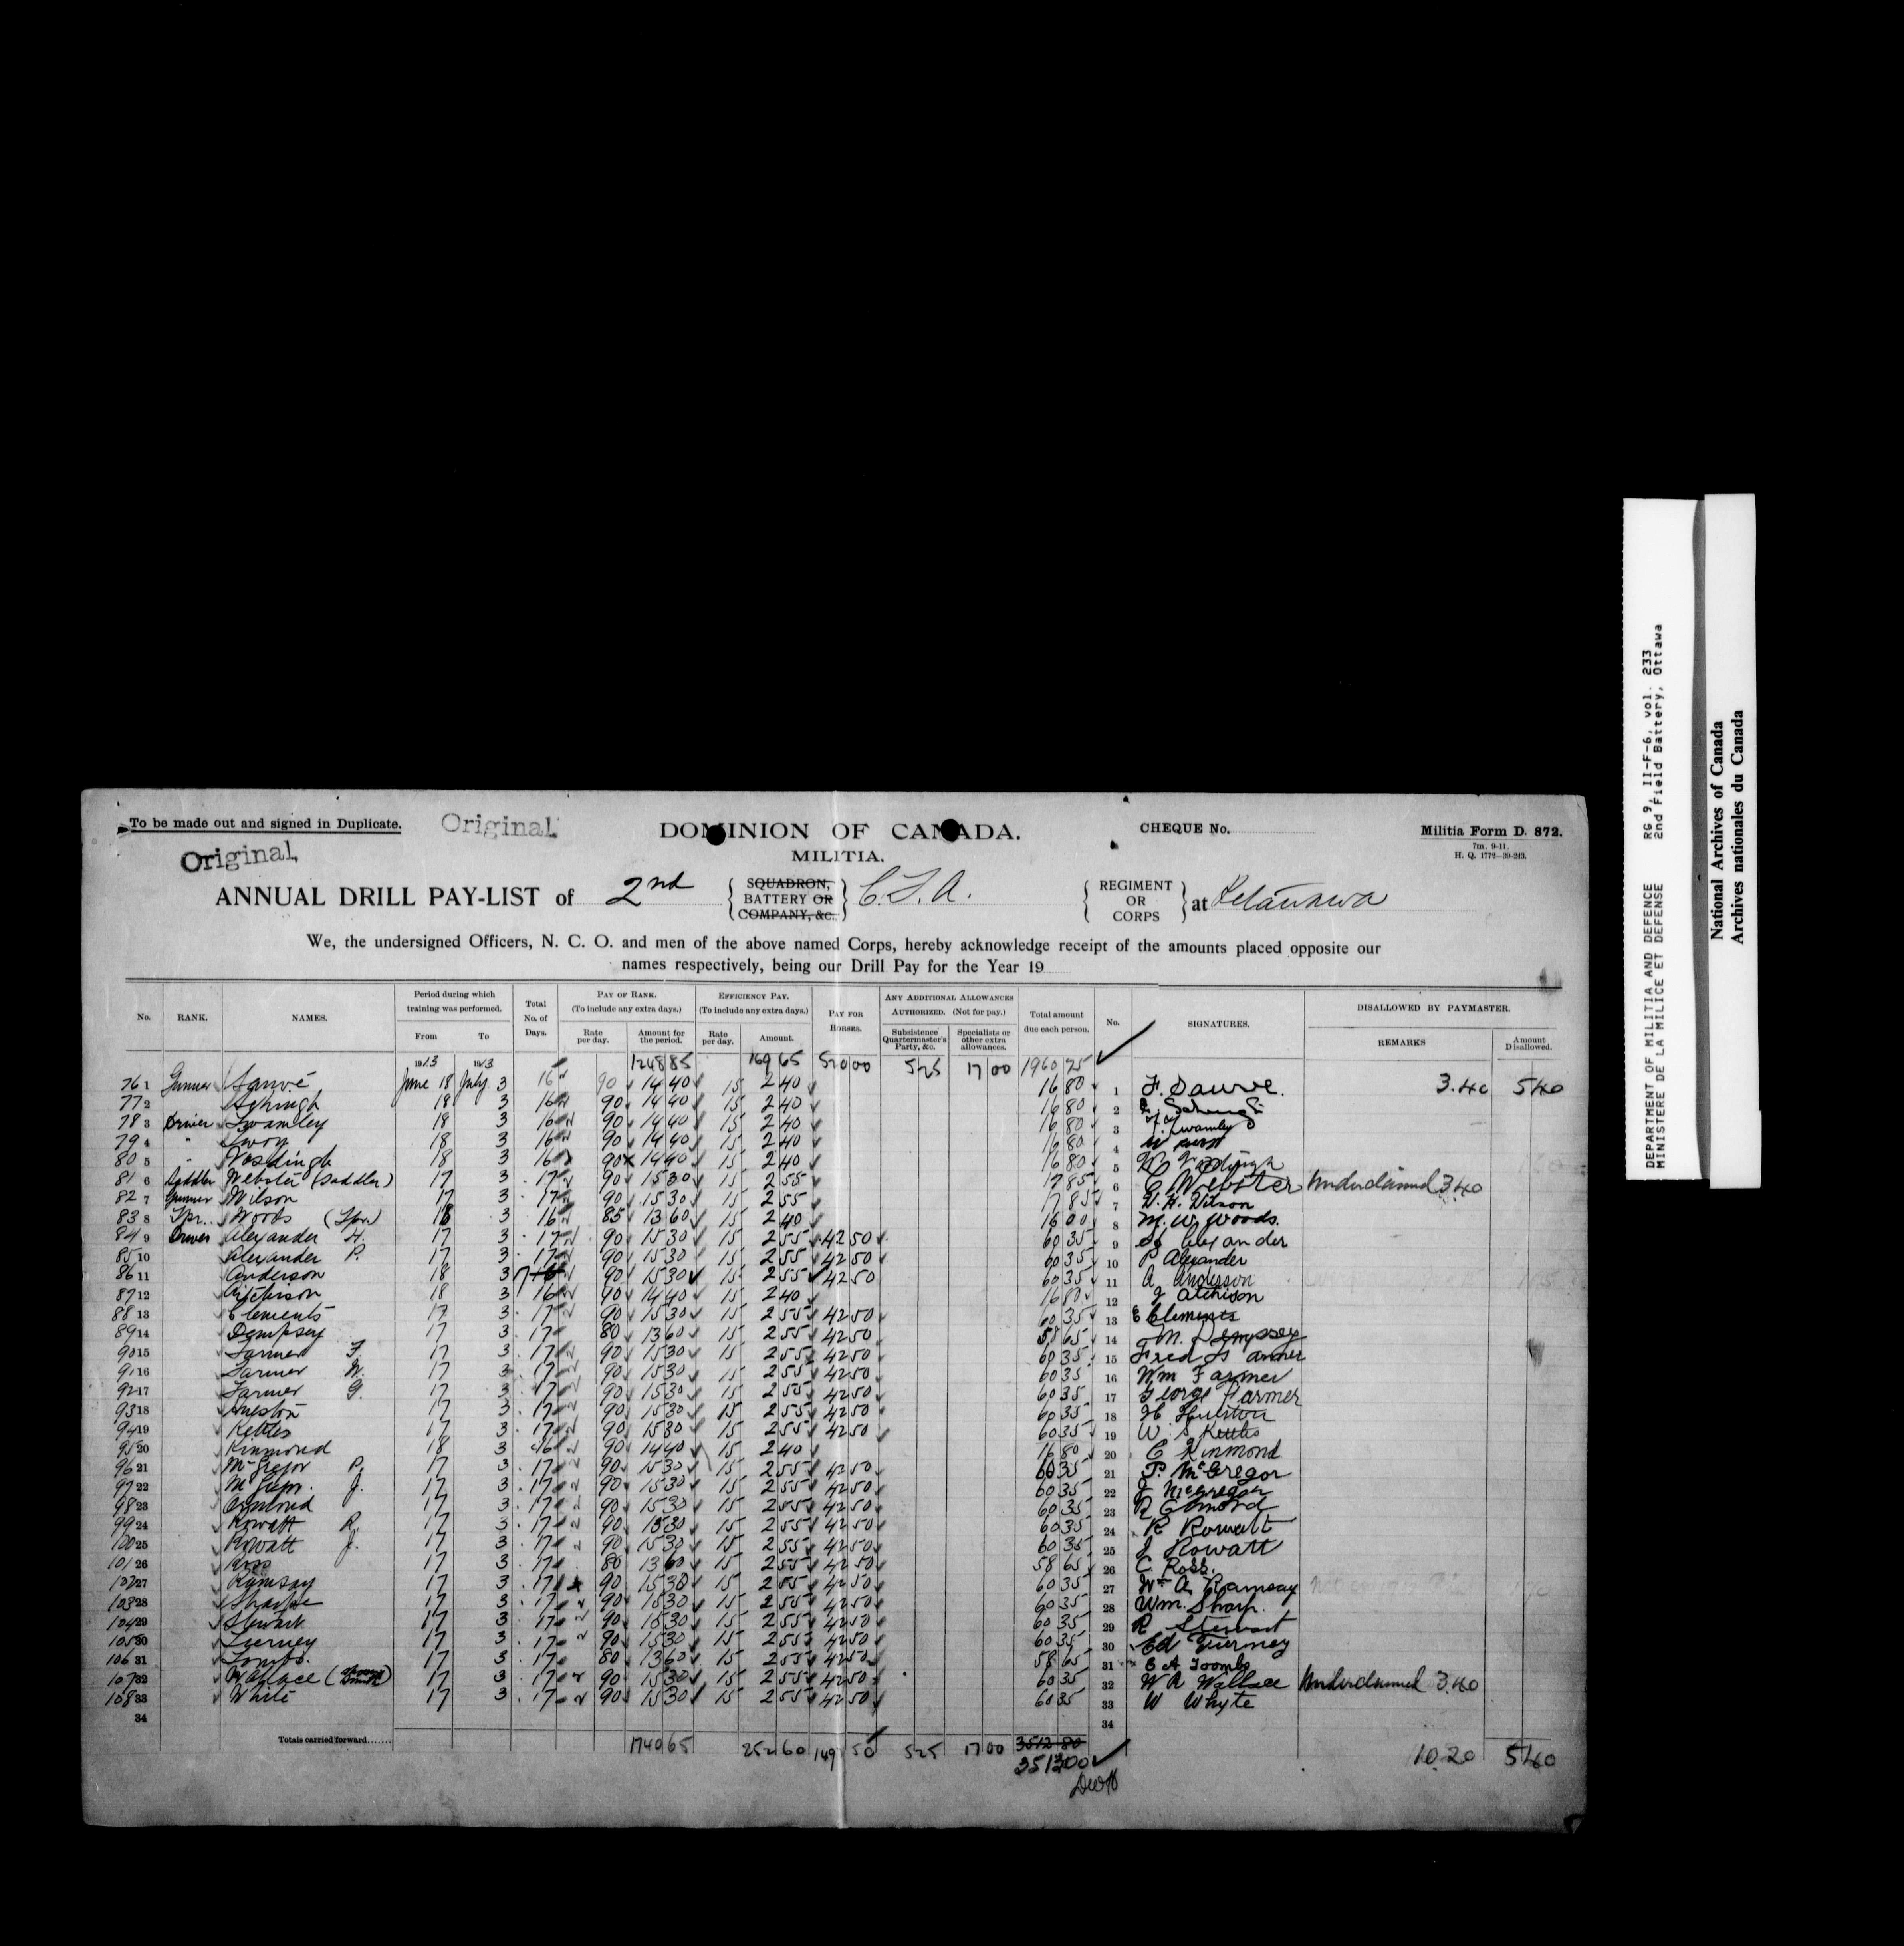 To be made out and signed in Duplicate.
Original
Original
DOMINION OF CANADA.
MILITIA.
CHEQUE No.
Militia Form D. 872.
7m. 9-11.
H. Q. 1772-39-243.
ANNUAL DRILL PAY-LIST of 2nd { SQUADRON, BATTERY OR COMPANY, &c. } C.F.A. { REGIMENT OR CORPS } at Petawawa
We, the undersigned Officers, N. C. O. and men of the above named Corps, hereby acknowledge receipt of the amounts placed opposite our
names respectively, being our Drill Pay for the Year 19
No. RANK. NAMES. Period during which training was performed. From To Total No. of Days. PAY OF RANK. (To include any extra days.) Rate per day. Amount for the period. EFFICIENCY PAY. (To include any extra days.) Rate per day. Amount. PAY FOR HORSES. ANY ADDITIONAL ALLOWANCES AUTHORIZED. (Not for pay.) Subsistence Quartermaster's Party, &c. Specialists or other extra allowances. Total amount due each person. No. SIGNATURES. DISALLOWED BY PAYMASTER. REMARKS Amount Disallowed.
1913 1913 1248 85 169 65 520 00 5 25 17 00 1960 25
76 1 Gunner Sauvé June 18 July 3 16 90 14 40 15 2 40 16 80 1 F. Sauve. 3.40 5 40
77 2 18 3 16 90 14 40 15 2 40 16 80 2
78 3 Driver Twamley 18 3 16 90 14 40 15 2 40 16 80 3 Twamley
79 4 " 18 3 16 90 14 40 15 2 40 16 80 4
80 5 " 18 3 16 90 14 40 15 2 40 16 80 5
81 6 Saddler Webster (Saddler) 17 3 17 90 15 30 15 2 55 17 85 6 C Webster Underclaimed 3.40
82 7 Gunner Wilson 17 3 17 90 15 30 15 2 55 17 85 7 W. H. Wilson
83 8 Tpr. Woods (Tpr.) 18 3 16 85 13 60 15 2 40 16 00 8 M. W. Woods.
84 9 Driver Alexander H. 17 3 17 90 15 30 15 2 55 42 50 60 35 9 H Alexander
85 10 Alexander P. 17 3 17 90 15 30 15 2 55 42 50 60 35 10 P Alexander
86 11 Anderson 18 3 17 90 15 30 15 2 55 42 50 60 35 11 A Anderson
87 12 Aitchison 18 3 16 90 14 40 15 2 40 16 80 12 J Atchison
88 13 Clements 17 3 17 90 15 30 15 2 55 42 50 60 35 13 E Clements
89 14 Dempsey 17 3 17 80 13 60 15 2 55 42 50 58 65 14 M. Dempsey
90 15 Farmer F. 17 3 17 90 15 30 15 2 55 42 50 60 35 15 Fred Farmer
91 16 Farmer W. 17 3 17 90 15 30 15 2 55 42 50 60 35 16 Wm Farmer
92 17 Farmer G. 17 3 17 90 15 30 15 2 55 42 50 60 35 17 George Farmer
93 18 Huston 17 3 17 90 15 30 15 2 55 42 50 60 35 18 H
94 19 Kettles 17 3 17 90 15 30 15 2 55 42 50 60 35 19 W. S Kettles
95 20 Kinmond 18 3 16 90 14 40 15 2 40 16 80 20 C Kinmond
96 21 McGregor P. 17 3 17 90 15 30 15 2 55 42 50 60 35 21 P. McGregor
97 22 McGregor J. 17 3 17 90 15 30 15 2 55 42 50 60 35 22 J McGregor
98 23 17 3 17 90 15 30 15 2 55 42 50 60 35 23
99 24 Rowatt R. 17 3 17 90 15 30 15 2 55 42 50 60 35 24 R Rowatt
100 25 Rowatt J. 17 3 17 90 15 30 15 2 55 42 50 60 35 25 J Rowatt
101 26 Ross 17 3 17 80 13 60 15 2 55 42 50 58 65 26 C Ross.
102 27 Ramsay 17 3 17 90 15 30 15 2 55 42 50 60 35 27 Wm A Ramsay
103 28 Sharpe 17 3 17 90 15 30 15 2 55 42 50 60 35 28 Wm. Sharp.
104 29 Stewart 17 3 17 90 15 30 15 2 55 42 50 60 35 29 R Stewart
105 30 Tierney 17 3 17 90 15 30 15 2 55 42 50 60 35 30 Ed Tierney
106 31 Toombs. 17 3 17 80 13 60 15 2 55 42 50 58 65 31 E A Toombs
107 32 Wallace 17 3 17 90 15 30 15 2 55 42 50 60 35 32 W R Wallace Underclaimed 3.40
108 33 White 17 3 17 90 15 30 15 2 55 42 50 60 35 33 W Whyte
34 34
Totals carried forward...... 1740 65 252 60 149 50 5 25 17 00 3512 80 10.20 5 40
3513 00
DEPARTMENT OF MILITIA AND DEFENCE RG 9, II-F-6, vol. 233
MINISTERE DE LA MILICE ET DEFENSE 2nd Field Battery, Ottawa
National Archives of Canada
Archives nationales du Canada